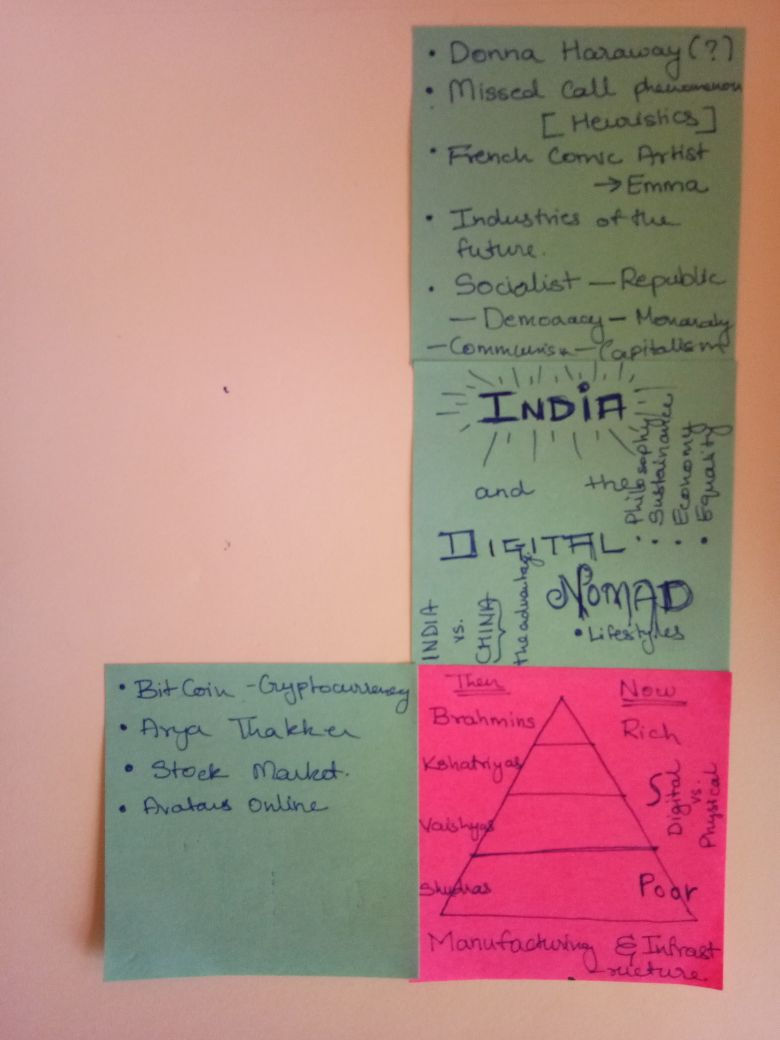 • Donna Haraway (?)
• Missed Call phenomenon
[Heuristics]
• French Comic Artist
→ Emma
• Industries of the
future.
• Socialist — Republic
— Democracy — Monarchy
— Communism — Capitalism
INDIA
and the
Philosophy
Sustainance
Economy
Equality
DIGITAL . . . •
NOMAD
• Lifestyles
INDIA
vs.
CHINA
the advantage
• BitCoin - Cryptocurrency
• Arya Thakker
• Stock Market.
• Avatars Online
Then
Now
Brahmins
Rich
Kshatriyas
Vaishyas
Digital
vs.
Physical
Shudras
Poor
Manufacturing & Infrast
-ructure